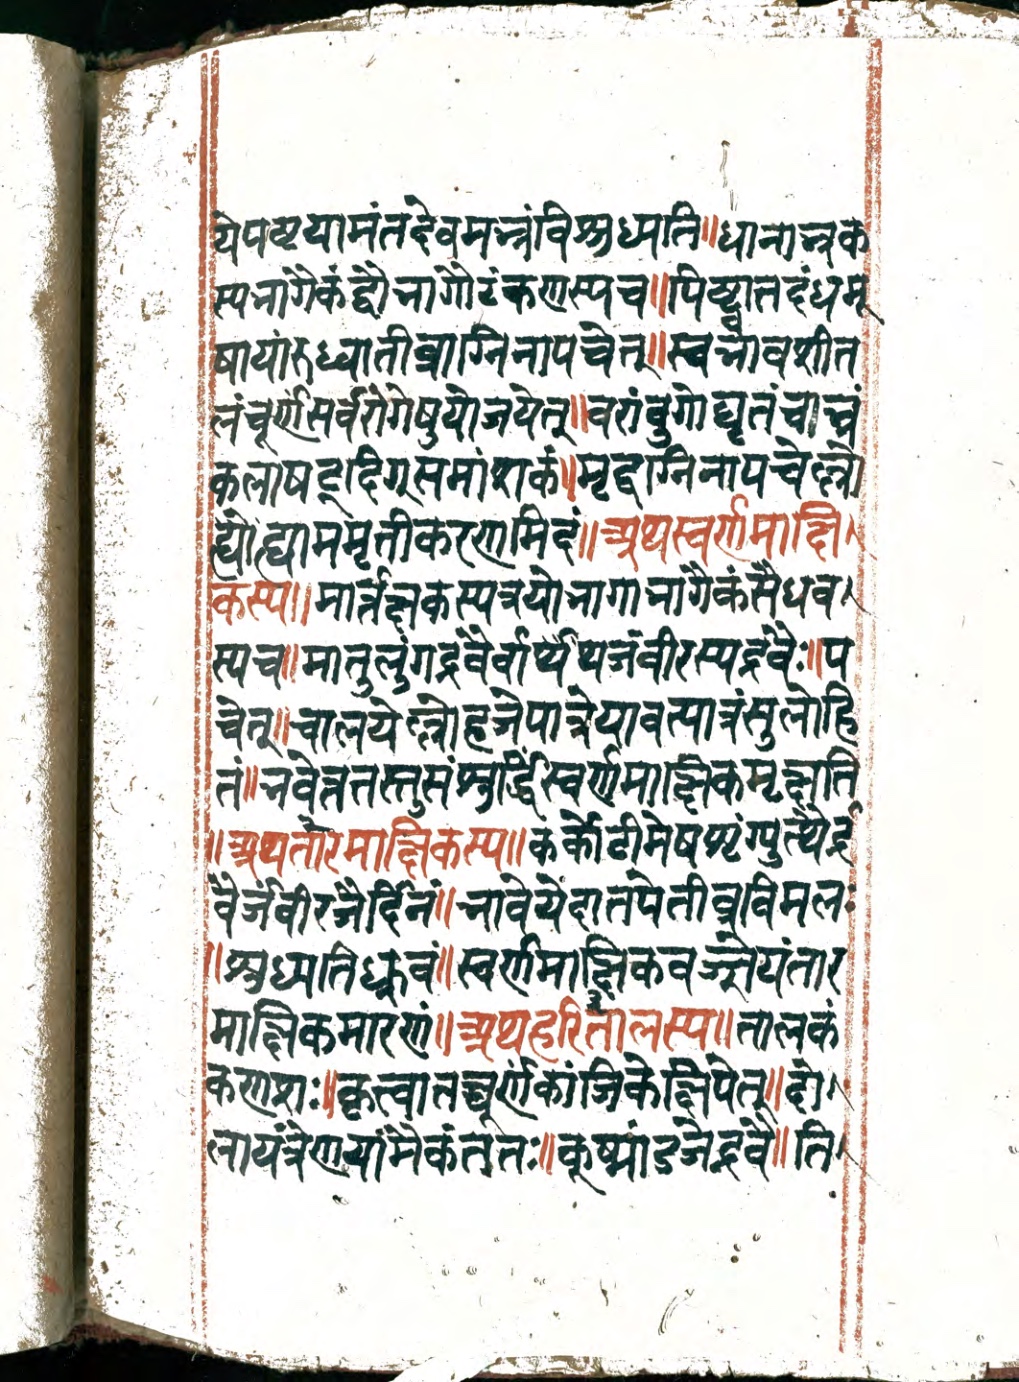 येपष्टयामंतदेवमन्त्रंविशुध्यति॥धानान्त्रक
स्पभागैकंद्वौभागौटंकणस्पच॥पिष्ट्वातदंधमू
षायांरुध्वातीव्राग्निनापचेत्॥स्वभावशीत
लंचूर्णंसर्वरोगेषुयोजयेत्॥वरांबुगोघृतंचाभ्रं
कलाषट्दिग्समांशकं॥मृद्वाग्निनापचेल्लो
ह्यांह्याममृतीकरणमिदं॥अथस्वर्णमाक्षि
कस्प॥मार्त्तक्षिकस्पत्रयोभागाभागैकंसैंधव
स्पच॥मातुलुंगद्रवैर्वार्थ्यथजंवीरस्पद्रवैः॥प
चेत्॥चालयेल्लोहजेपात्रेयावत्पात्रंसुलोहि
तं॥भवेत्ततस्तुसंशुद्धिंस्वर्णमाक्षिकमृछति
॥अथतारमाक्षिकस्प॥कर्कोटीमेषशृंग्युत्थैर्द्र
वैर्जंवीरजैर्दिनं॥भावयेदातपेतीव्रेविमलः
॥शुध्यतिध्रुवं॥स्वर्णमाक्षिकवज्ज्ञेयंतार
माक्षिकमारणं॥अथहरितालस्प॥तालकं
कणशः॥कृत्वातच्चूर्णंकांजिकेक्षिपेत्॥दो
लायंत्रेणयामैकंततः॥कूष्मांडजैद्रवै॥ति